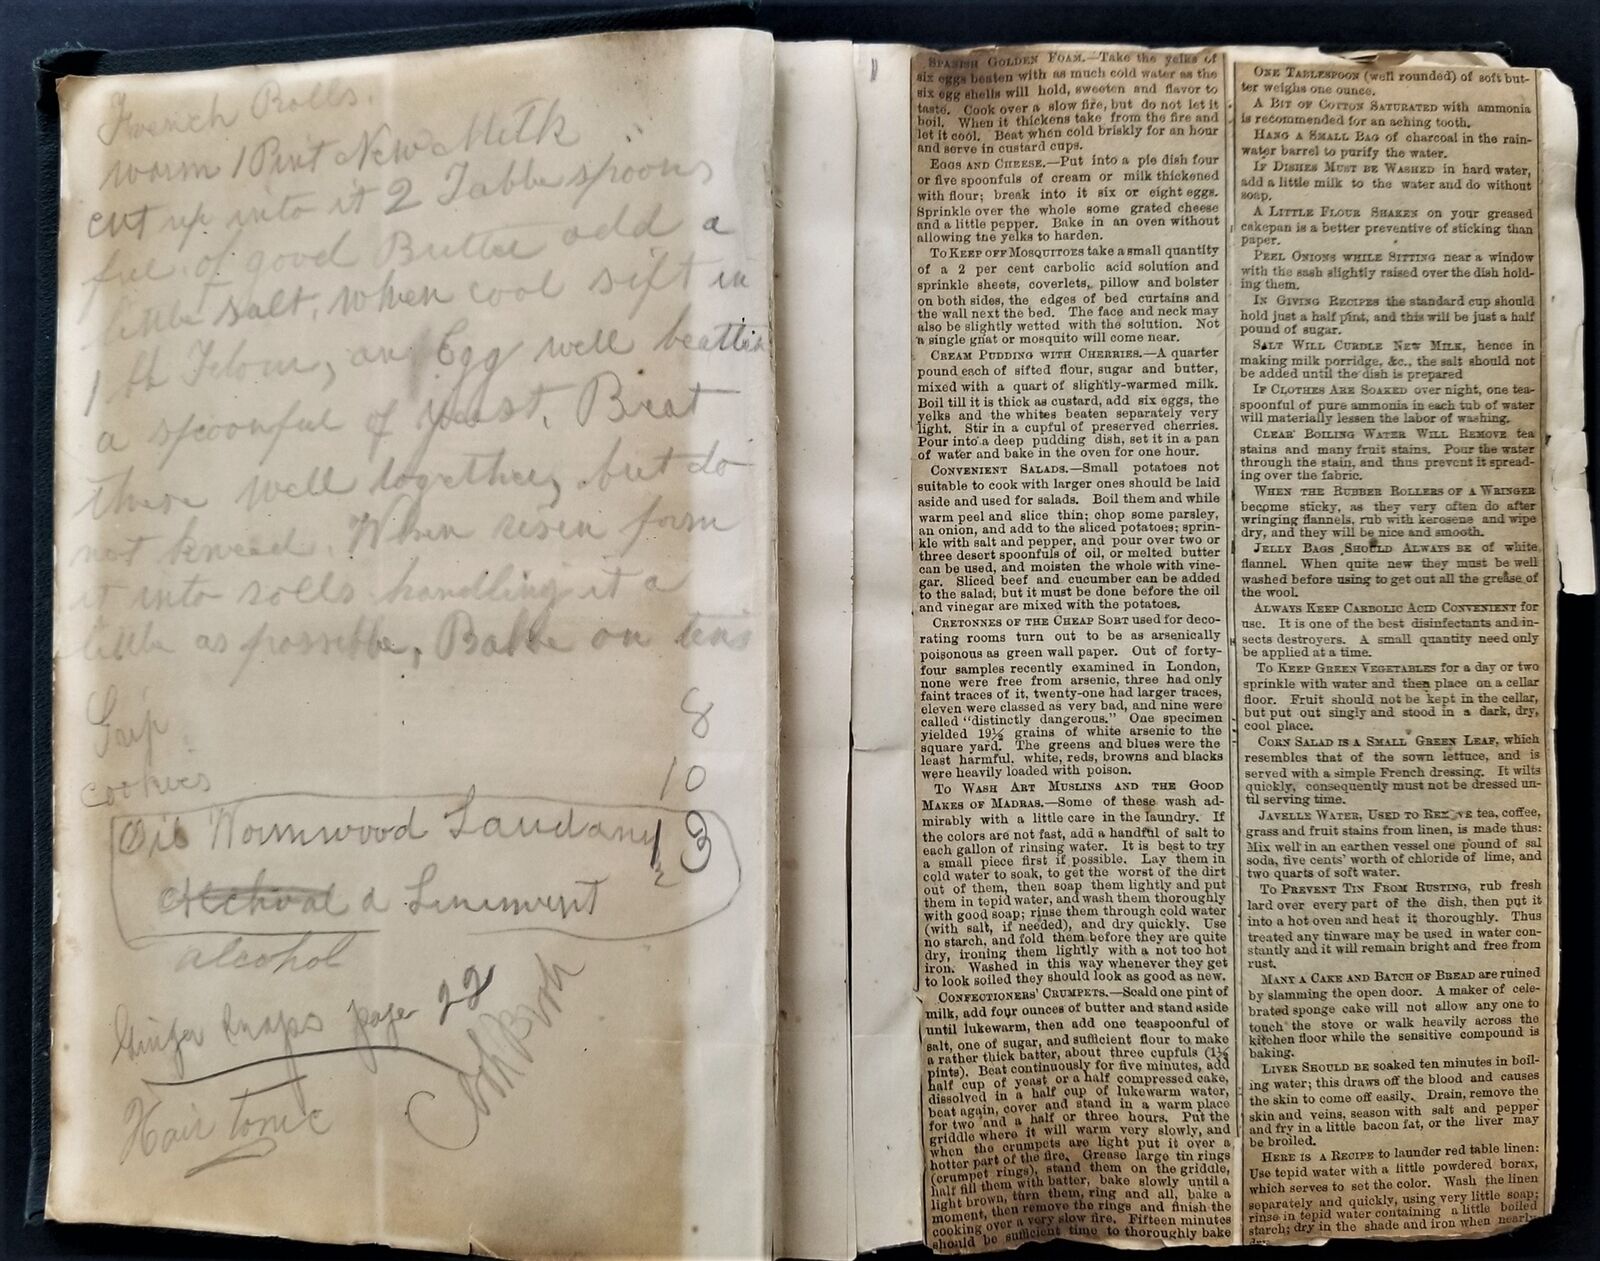 French Rolls.
warm 1 Pint New Milk
cut up into it 2 Tabbe spoons
ful of good Butter add a
little salt, when cool sift in
1 lb Flour, an Egg well beatten
a spoonful of yeast. Beat
these well together, but do
not knead. When risen form
it into rolls handling it a
little as possible, Bake on tins
Grip 8
cookies 10
Oil Wormwood Laudanum
a Liniment
alcohol
Ginger Snaps page 22
Hair tonic
SPANISH GOLDEN FOAM.—Take the yelks of
six eggs beaten with as much cold water as the
six egg shells will hold, sweeten and flavor to
taste. Cook over a slow fire, but do not let it
boil. When it thickens take from the fire and
let it cool. Beat when cold briskly for an hour
and serve in custard cups.
EGGS AND CHEESE.—Put into a pie dish four
or five spoonfuls of cream or milk thickened
with flour; break into it six or eight eggs.
Sprinkle over the whole some grated cheese
and a little pepper. Bake in an oven without
allowing tne yelks to harden.
TO KEEP OFF MOSQUITOES take a small quantity
of a 2 per cent carbolic acid solution and
sprinkle sheets, coverlets, pillow and bolster
on both sides, the edges of bed curtains and
the wall next the bed. The face and neck may
also be slightly wetted with the solution. Not
a single gnat or mosquito will come near.
CREAM PUDDING WITH CHERRIES.—A quarter
pound each of sifted flour, sugar and butter,
mixed with a quart of slightly-warmed milk.
Boil till it is thick as custard, add six eggs, the
yelks and the whites beaten separately very
light. Stir in a cupful of preserved cherries.
Pour into a deep pudding dish, set it in a pan
of water and bake in the oven for one hour.
CONVENIENT SALADS.—Small potatoes not
suitable to cook with larger ones should be laid
aside and used for salads. Boil them and while
warm peel and slice thin; chop some parsley,
an onion, and add to the sliced potatoes; sprin-
kle with salt and pepper, and pour over two or
three desert spoonfuls of oil, or melted butter
can be used, and moisten the whole with vine-
gar. Sliced beef and cucumber can be added
to the salad, but it must be done before the oil
and vinegar are mixed with the potatoes.
CRETONNES OF THE CHEAP SORT used for deco-
rating rooms turn out to be as arsenically
poisonous as green wall paper. Out of forty-
four samples recently examined in London,
none were free from arsenic, three had only
faint traces of it, twenty-one had larger traces,
eleven were classed as very bad, and nine were
called "distinctly dangerous." One specimen
yielded 19½ grains of white arsenic to the
square yard. The greens and blues were the
least harmful, white, reds, browns and blacks
were heavily loaded with poison.
TO WASH ART MUSLINS AND THE GOOD
MAKES OF MADRAS.—Some of these wash ad-
mirably with a little care in the laundry. If
the colors are not fast, add a handful of salt to
each gallon of rinsing water. It is best to try
a small piece first if possible. Lay them in
cold water to soak, to get the worst of the dirt
out of them, then soap them lightly and put
them in tepid water, and wash them thoroughly
with good soap; rinse them through cold water
(with salt, if needed), and dry quickly. Use
no starch, and fold them before they are quite
dry, ironing them lightly with a not too hot
iron. Washed in this way whenever they get
to look soiled they should look as good as new.
CONFECTIONERS' CRUMPETS.—Scald one pint of
milk, add four ounces of butter and stand aside
until lukewarm, then add one teaspoonful of
salt, one of sugar, and sufficient flour to make
a rather thick batter, about three cupfuls (1½
pints). Beat continuously for five minutes, add
half cup of yeast or a half compressed cake,
dissolved in a half cup of lukewarm water,
beat again, cover and stand in a warm place
for two and a half or three hours. Put the
griddle where it will warm very slowly, and
when the crumpets are light put it over a
hotter part of the fire. Grease large tin rings
(crumpet rings), stand them on the griddle,
half fill them with batter, bake slowly until a
light brown, turn them, ring and all, bake a
moment, then remove the rings and finish the
cooking over a very slow fire. Fifteen minutes
should be sufficient time to thoroughly bake
ONE TABLESPOON (well rounded) of soft but-
ter weighs one ounce.
A BIT OF COTTON SATURATED with ammonia
is recommended for an aching tooth.
HANG A SMALL BAG of charcoal in the rain-
water barrel to purify the water.
IF DISHES MUST BE WASHED in hard water,
add a little milk to the water and do without
soap.
A LITTLE FLOUR SHAKEN on your greased
cakepan is a better preventive of sticking than
paper.
PEEL ONIONS WHILE SITTING near a window
with the sash slightly raised over the dish hold-
ing them.
IN GIVING RECIPES the standard cup should
hold just a half pint, and this will be just a half
pound of sugar.
SALT WILL CURDLE NEW MILK, hence in
making milk porridge, &c., the salt should not
be added until the dish is prepared
IF CLOTHES ARE SOAKED over night, one tea-
spoonful of pure ammonia in each tub of water
will materially lessen the labor of washing.
CLEAR BOILING WATER WILL REMOVE tea
stains and many fruit stains. Pour the water
through the stain, and thus prevent it spread-
ing over the fabric.
WHEN THE RUBBER ROLLERS OF A WRINGER
become sticky, as they very often do after
wringing flannels, rub with kerosene and wipe
dry, and they will be nice and smooth.
JELLY BAGS SHOULD ALWAYS BE of white
flannel. When quite new they must be well
washed before using to get out all the grease of
the wool.
ALWAYS KEEP CARBOLIC ACID CONVENIENT for
use. It is one of the best disinfectants and in-
sects destroyers. A small quantity need only
be applied at a time.
TO KEEP GREEN VEGETABLES for a day or two
sprinkle with water and then place on a cellar
floor. Fruit should not be kept in the cellar,
but put out singly and stood in a dark, dry,
cool place.
CORN SALAD IS A SMALL GREEN LEAF, which
resembles that of the sown lettuce, and is
served with a simple French dressing. It wilts
quickly, consequently must not be dressed un-
til serving time.
JAVELLE WATER, USED TO REMOVE tea, coffee,
grass and fruit stains from linen, is made thus:
Mix well in an earthen vessel one pound of sal
soda, five cents' worth of chloride of lime, and
two quarts of soft water.
TO PREVENT TIN FROM RUSTING, rub fresh
lard over every part of the dish, then put it
into a hot oven and heat it thoroughly. Thus
treated any tinware may be used in water con-
stantly and it will remain bright and free from
rust.
MANY A CAKE AND BATCH OF BREAD are ruined
by slamming the open door. A maker of cele-
brated sponge cake will not allow any one to
touch the stove or walk heavily across the
kitchen floor while the sensitive compound is
baking.
LIVER SHOULD BE soaked ten minutes in boil-
ing water; this draws off the blood and causes
the skin to come off easily. Drain, remove the
skin and veins, season with salt and pepper
and fry in a little bacon fat, or the liver may
be broiled.
HERE IS A RECIPE to launder red table linen:
Use tepid water with a little powdered borax,
which serves to set the color. Wash the linen
separately and quickly, using very little soap;
rinse in tepid water containing a little boiled
starch; dry in the shade and iron when nearly